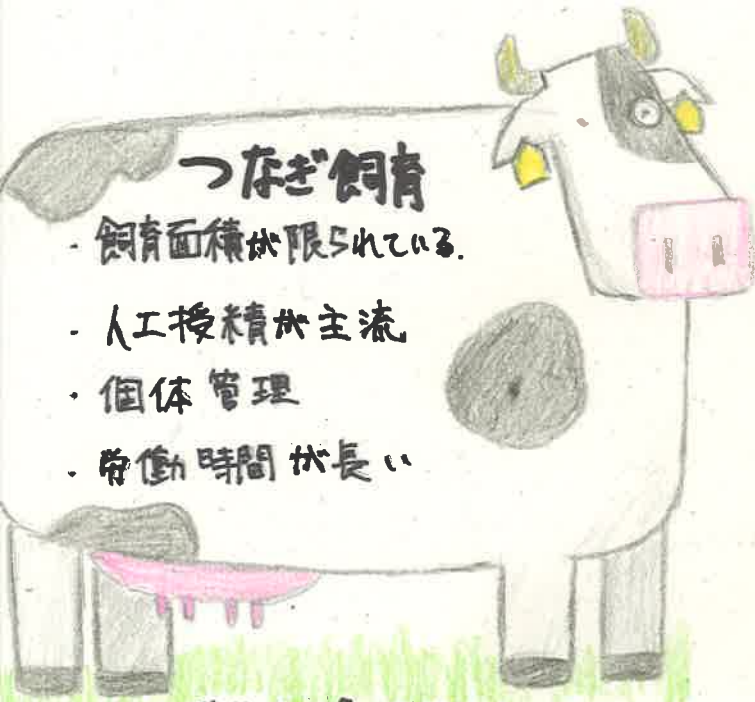 つなぎ飼育
・飼育面積が限られている.
・人工授精が主流
・個体管理
・労働時間が長い